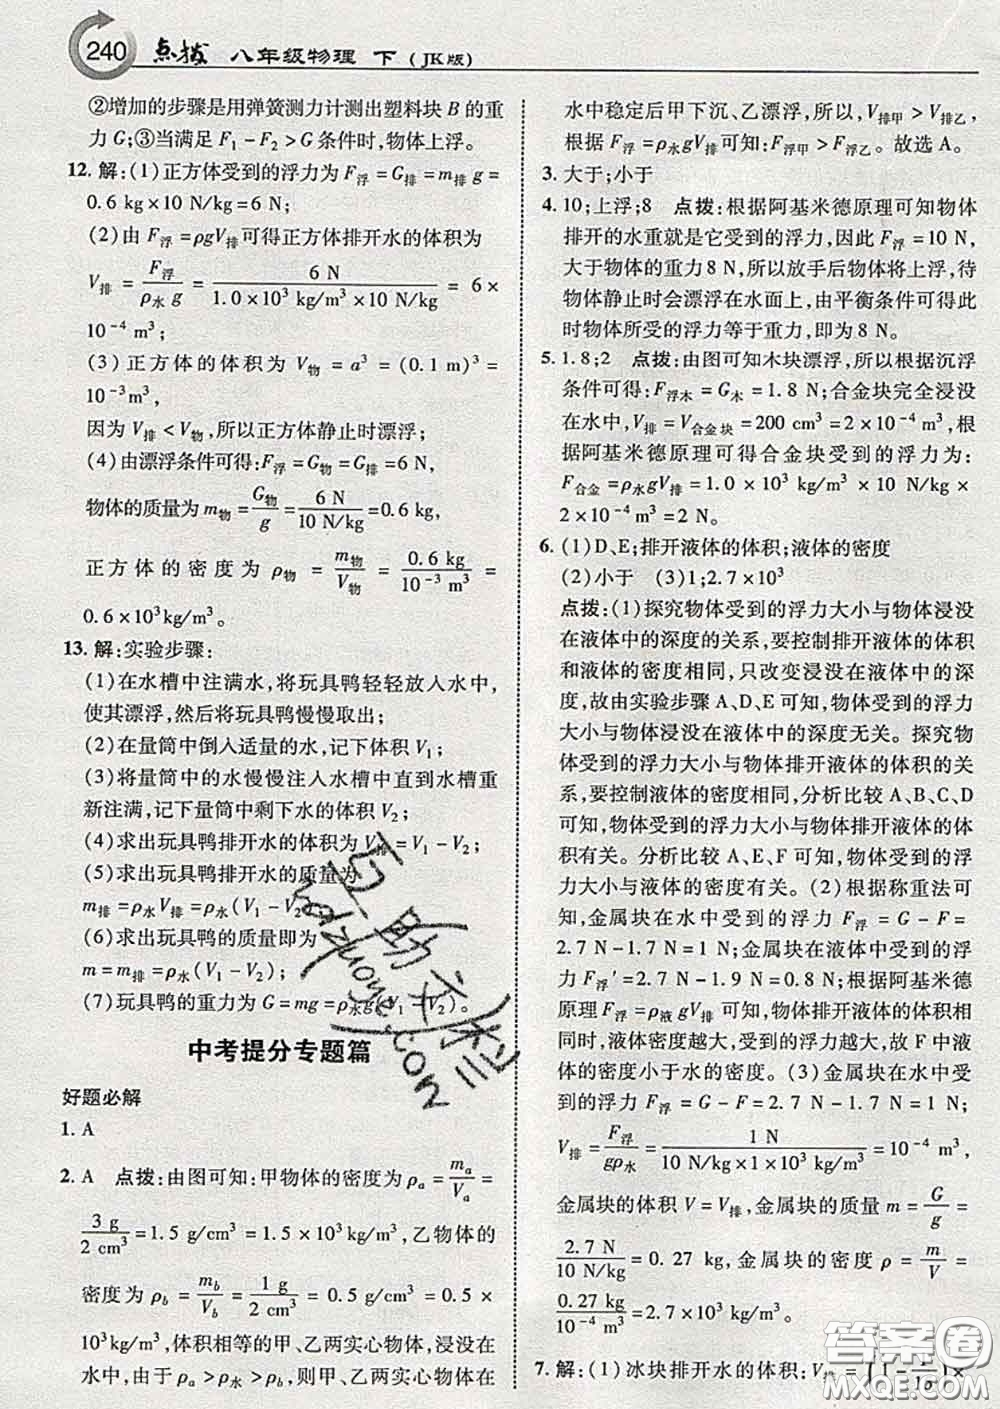 240 点拨 八年级物理 下 (JK版)
②增加的步骤是用弹簧测力计测出塑料块 B 的重
力 G;③当满足 F₁－F₂＞G 条件时,物体上浮。
12. 解:(1)正方体受到的浮力为 F浮＝G排＝m排 g＝
0.6 kg×10 N/kg＝6 N;
(2)由 F浮＝ρgV排可得正方体排开水的体积为
V排＝F浮/(ρ水 g)＝6 N/(1.0×10³ kg/m³×10 N/kg)＝6×
10⁻⁴ m³;
(3)正方体的体积为 V物＝a³＝(0.1 m)³＝
10⁻³m³,
因为 V排＜V物,所以正方体静止时漂浮;
(4)由漂浮条件可得:F浮＝G物＝G排＝6 N,
物体的质量为 m物＝G物/g＝6 N/(10 N/kg)＝0.6 kg,
正方体的密度为 ρ物＝m物/V物＝0.6 kg/(10⁻³ m³)＝
0.6×10³kg/m³。
13. 解:实验步骤:
(1)在水槽中注满水,将玩具鸭轻轻放入水中,
使其漂浮,然后将玩具鸭慢慢取出;
(2)在量筒中倒入适量的水,记下体积 V₁;
(3)将量筒中的水慢慢注入水槽中直到水槽重
新注满,记下量筒中剩下水的体积 V₂;
(4)求出玩具鸭排开水的体积为 V排＝V₁－V₂;
(5)求出玩具鸭排开水的质量为
m排＝ρ水V排＝ρ水(V₁－V₂);
(6)求出玩具鸭的质量即为
m＝m排＝ρ水(V₁－V₂);
(7)玩具鸭的重力为 G＝mg＝ρ水g(V₁－V₂)。
中考提分专题篇
好题必解
1. A
2. A 点拨:由图可知:甲物体的密度为 ρa＝ma/Va＝
3 g/(2 cm³)＝1.5 g/cm³＝1.5×10³ kg/m³,乙物体的
密度为 ρb＝mb/Vb＝1 g/(2 cm³)＝0.5 g/cm³＝0.5×
10³kg/m³,体积相等的甲、乙两实心物体,浸没在
水中,由于 ρa＞ρ水＞ρb,则甲、乙两实心物体在
水中稳定后甲下沉、乙漂浮,所以,V排甲＞V排乙,
根据 F浮＝ρ水gV排可知:F浮甲＞F浮乙。故选 A。
3. 大于;小于
4. 10;上浮;8 点拨:根据阿基米德原理可知物体
排开的水重就是它受到的浮力,因此 F浮＝10 N,
大于物体的重力 8 N,所以放手后物体将上浮,待
物体静止时会漂浮在水面上,由平衡条件可得此
时物体所受的浮力等于重力,即为 8 N。
5. 1.8;2 点拨:由图可知木块漂浮,所以根据沉浮
条件可得:F浮木＝G木＝1.8 N;合金块完全浸没
在水中,V排＝V合金块＝200 cm³＝2×10⁻⁴ m³,根
据阿基米德原理可得合金块受到的浮力为:
F合金＝ρ水gV排＝1.0×10³ kg/m³×10 N/kg×
2×10⁻⁴ m³＝2 N。
6. (1)D、E;排开液体的体积;液体的密度
(2)小于 (3)1;2.7×10³
点拨:(1)探究物体受到的浮力大小与物体浸没
在液体中的深度的关系,要控制排开液体的体积
和液体的密度相同,只改变浸没在液体中的深
度,故由实验步骤 A、D、E 可知,物体受到的浮力
大小与物体浸没在液体中的深度无关。探究物
体受到的浮力大小与物体排开液体的体积的关
系,要控制液体的密度相同,分析比较 A、B、C、D
可知,物体受到的浮力大小与物体排开液体的体
积有关。分析比较 A、E、F 可知,物体受到的浮
力大小与液体的密度有关。(2)根据称重法可
知,金属块在水中受到的浮力 F浮＝G－F＝
2.7 N－1.7 N＝1 N;金属块在液体中受到的浮
力 F浮′＝2.7 N－1.9 N＝0.8 N;根据阿基米德
原理 F浮＝ρ液 gV排可知,物体排开液体的体积相
同时,液体密度越大,受到的浮力越大,故 F 中液
体的密度小于水的密度。(3)金属块在水中受
到的浮力 F浮＝G－F＝2.7 N－1.7 N＝1 N;
V排＝F浮/(gρ水)＝1 N/(10 N/kg×1×10³ kg/m³)＝10⁻⁴ m³,
金属块的体积 V＝V排,金属块的质量 m＝G/g＝
2.7 N/(10 N/kg)＝0.27 kg,金属块的密度 ρ＝m/V＝
0.27 kg/(10⁻⁴ m³)＝2.7×10³ kg/m³。
7. 解:(1)冰块排开水的体积:V排＝(1－1/10)×
答案圈
MXQE.COM